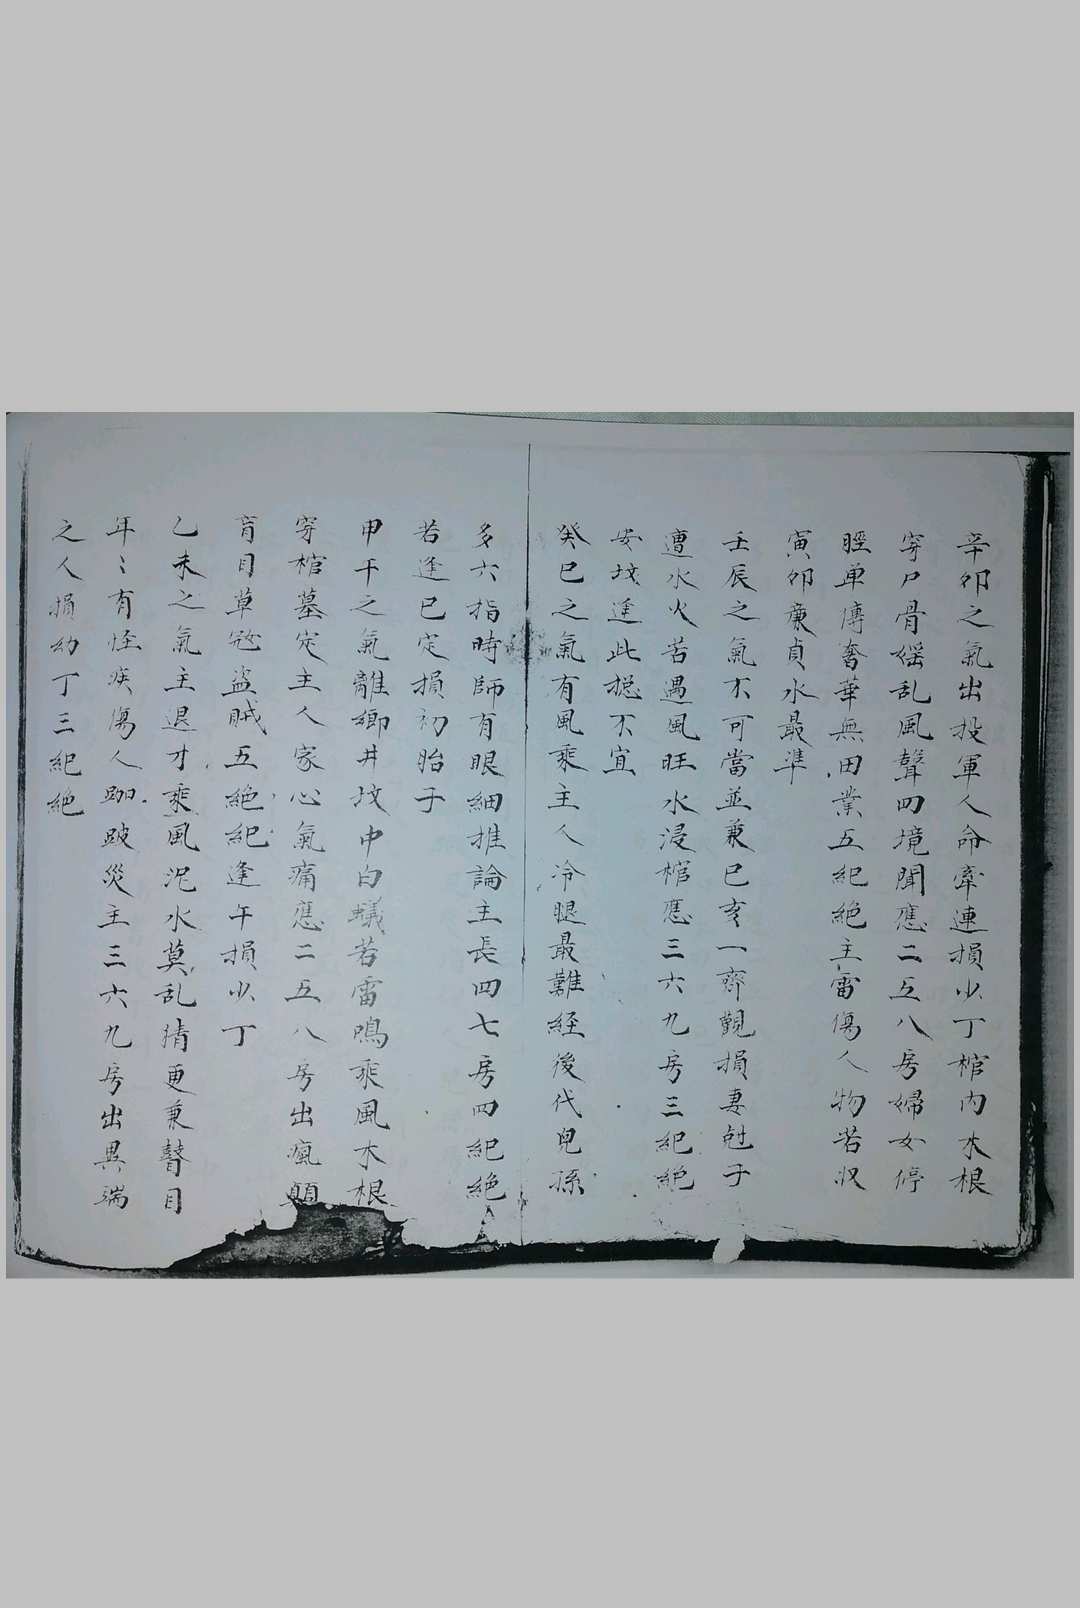 辛卯之氣出投軍人命牽連損少丁棺內木根
穿尸骨婬乱風聲四境聞應二五八房婦女停
胵单傳奢華無田業五紀絶主雷傷人物若収
寅卯亷貞水最準
壬辰之氣不可當並兼巳亥一齊觀損妻尅子
遭水火若遇風旺水浸棺應三六九房三紀絶
安坟逢此摠不宜
癸巳之氣有風乘主人冷腿最難経後代兒孫
多六指時師有眼細推論主長四七房四紀絶
若逢巳定損初胎子
甲午之氣離鄉井坟中白蟻若雷鳴乘風木根
穿棺墓定主人家心氣痛應二五八房出瘋顛
盲目草宼盜賊五絶紀逢午損少丁
乙未之氣主退才乘風泥水莫乱猜更兼瞽目
年〻有怪疾傷人跏跛災主三六九房出異端
之人損幼丁三紀絶